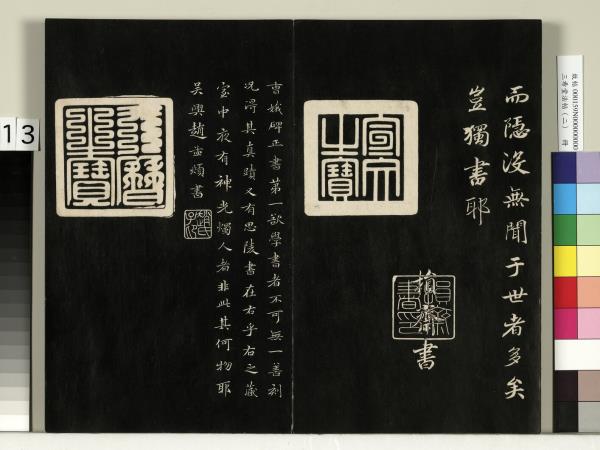 而隱沒無聞于世者多矣
豈獨書耶
損齋書
宣文之寶
曹娥碑正書第一欲學書者不可無一善刻
況得其真蹟又有思陵書在右乎右之藏
室中夜有神光燭人者非此其何物耶
吳興趙孟頫書
趙氏子昂
天曆之寶
故帖 000159N000000000
三希堂法帖（二） 冊
13